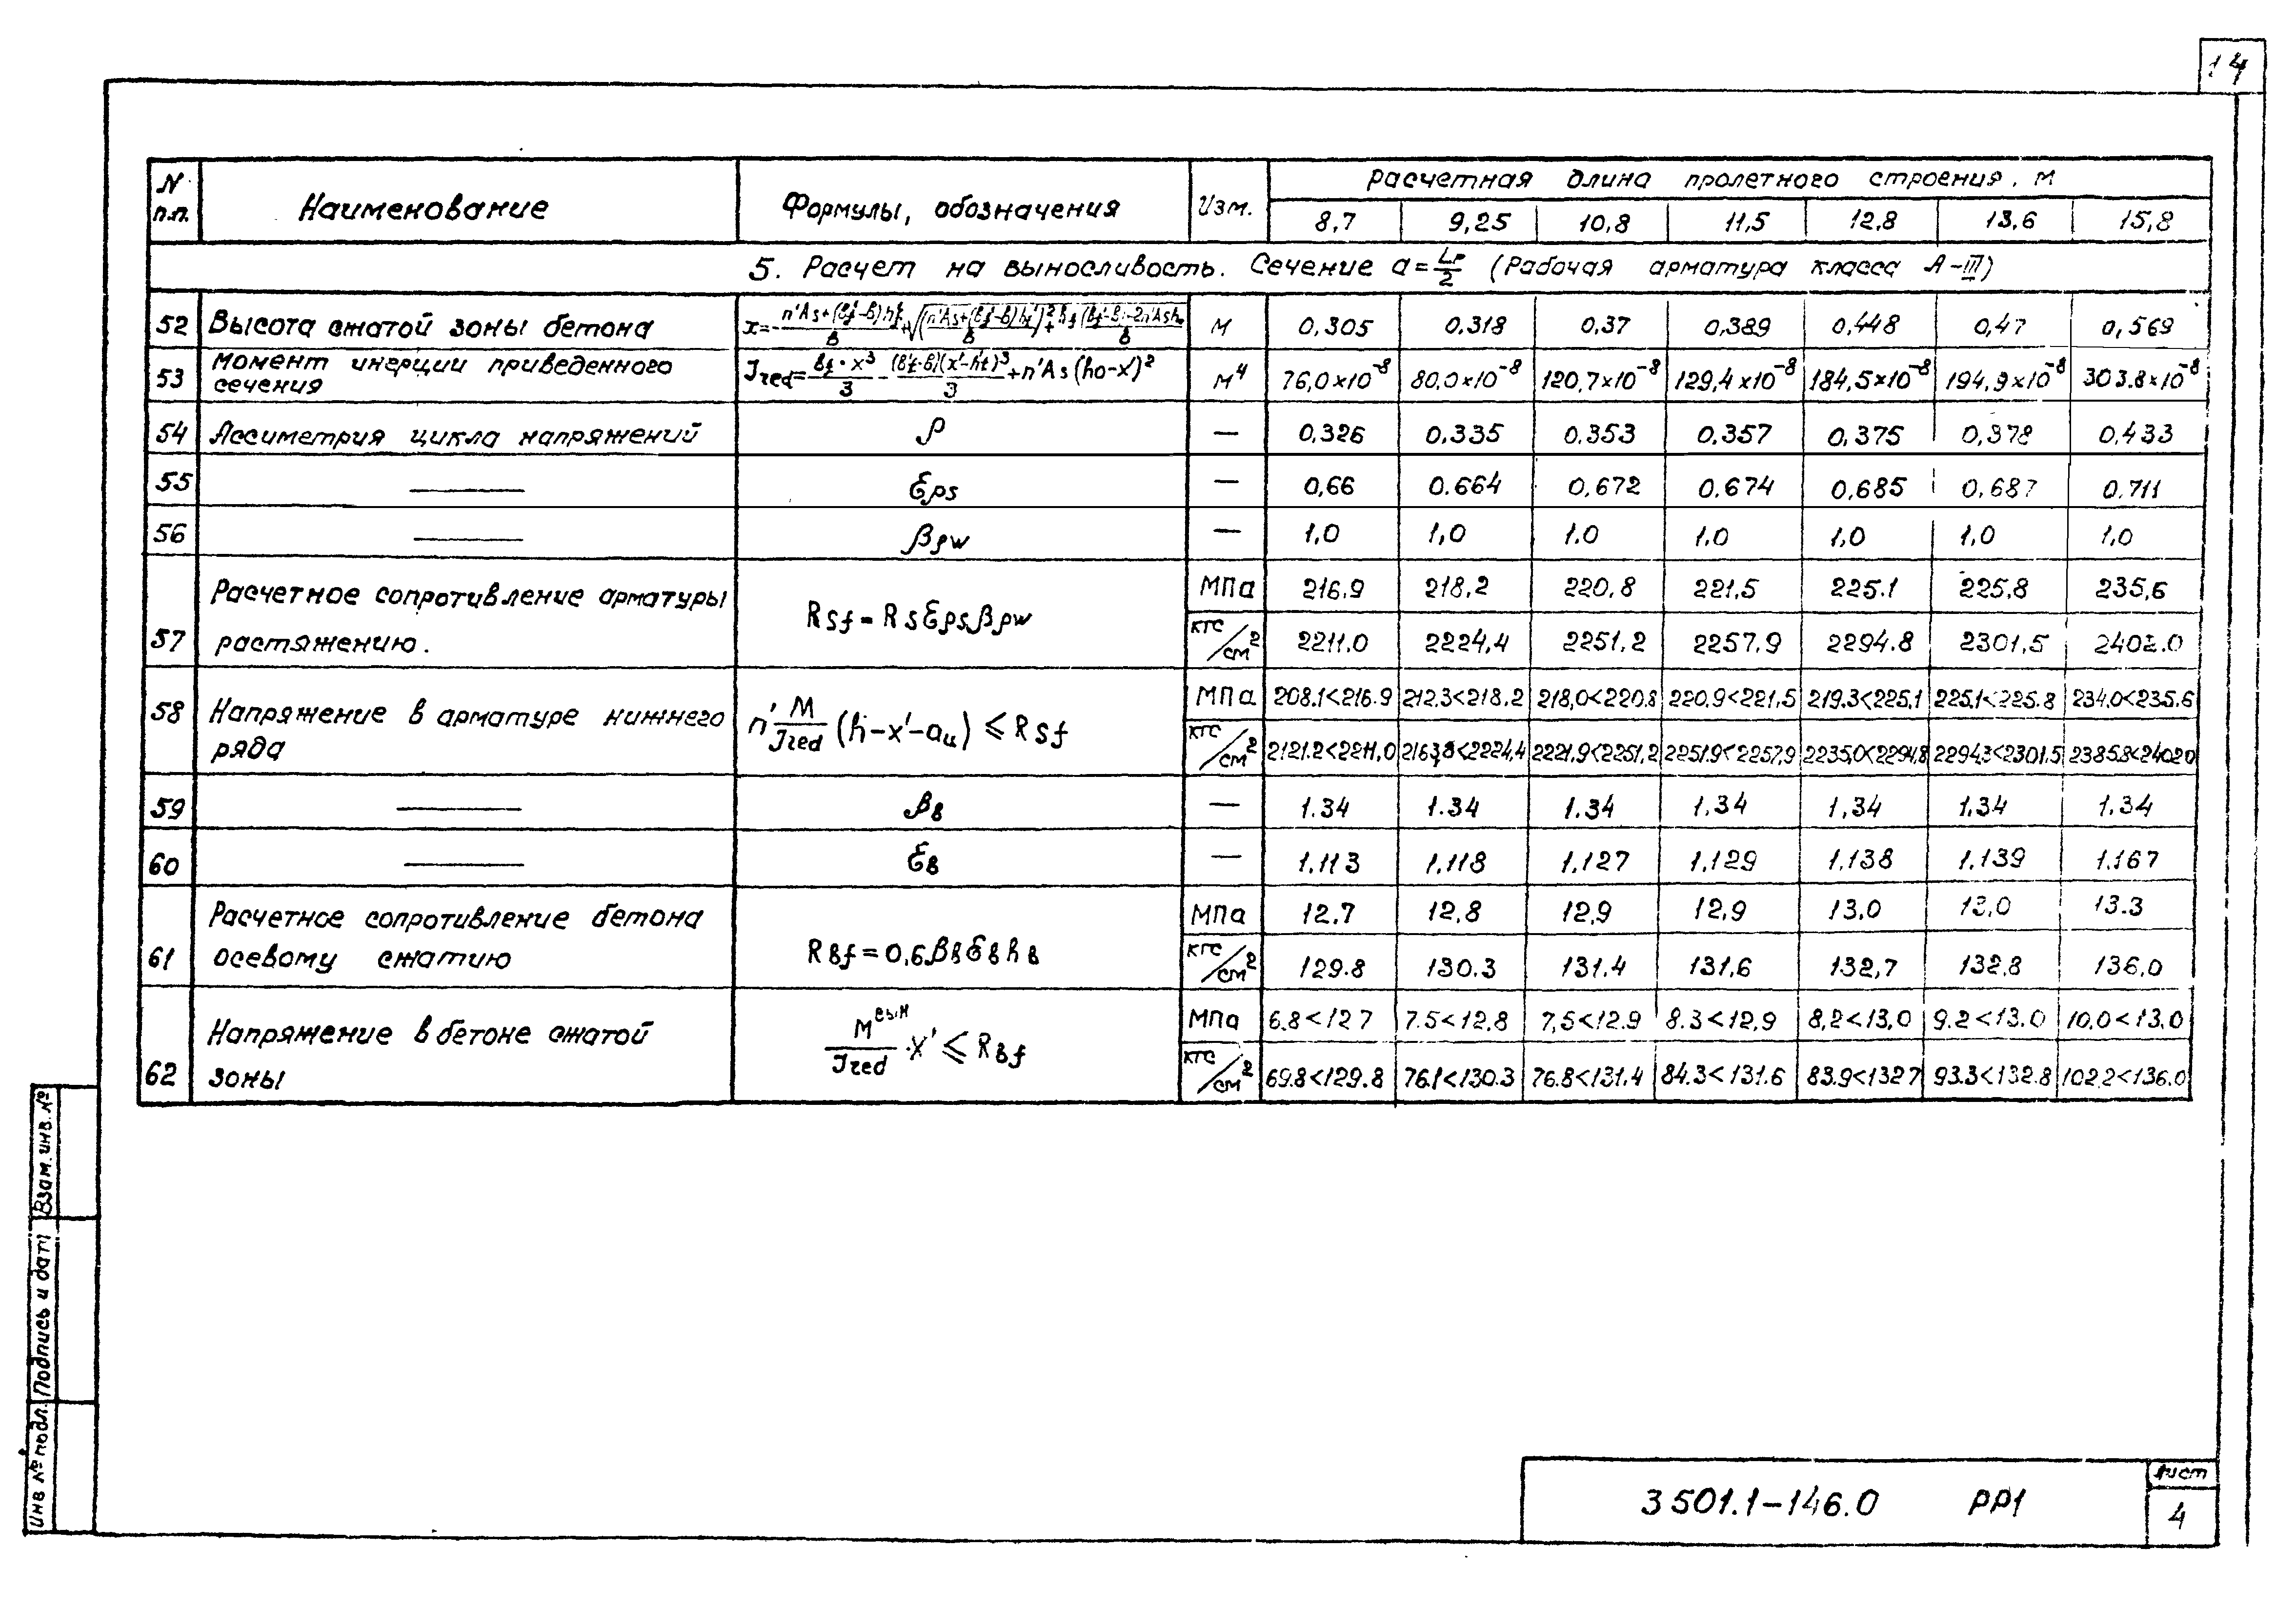 14
N п.п. Наименование Формулы, обозначения Изм. Расчетная длина пролетного строения, м
8,7 9,25 10,8 11,5 12,8 13,6 15,8
5. Расчет на выносливость. Сечение a=Lp/2 (Рабочая арматура класса А-III)
52 Высота сжатой зоны бетона м 0,305 0,318 0,37 0,389 0,448 0,47 0,569
53 Момент инерции приведенного сечения Jred= bf·x³/3 - (b'f-b)(x'-h'f)³/3 +n'As(ho-x')² м⁴ 76,0×10⁻⁸ 80,0×10⁻⁸ 120,7×10⁻⁸ 129,4×10⁻⁸ 184,5×10⁻⁸ 194,9×10⁻⁸ 303.8×10⁻⁸
54 Ассиметрия цикла напряжений ρ — 0,326 0.335 0.353 0.357 0,375 0,378 0,433
55 — Ɛρs — 0,66 0.664 0,672 0.674 0,685 0,687 0.711
56 — βρw — 1,0 1,0 1.0 1.0 1,0 1,0 1,0
57 Расчетное сопротивление арматуры растяжению. Rsf = RsƐρsβρw МПа 216.9 218,2 220,8 221,5 225.1 225,8 235,6
кгс/см² 2211.0 2224,4 2251,2 2257.9 2294.8 2301,5 2402.0
58 Напряжение в арматуре нижнего ряда n' M/Jred (h-x'-au) ⩽ Rsf МПа 208.1<216.9 212.3<218.2 218,0<220.8 220.9<221,5 219.3<225.1 225.1<225.8 234.0<235.6
кгс/см² 2121.2<2211,0 2163,8<2224,4 2221,9<2251,2 2251.9<2257,9 2235,0<2294,8 2294,3<2301,5 2385.8<2402.0
59 — βв — 1.34 1.34 1.34 1,34 1,34 1.34 1.34
60 — Ɛв — 1.113 1.118 1,127 1,129 1.138 1.139 1.167
61 Расчетное сопротивление бетона осевому сжатию Rвf = 0,6βвƐвRв МПа 12.7 12,8 12,9 12,9 13,0 13,0 13.3
кгс/см² 129.8 130.3 131.4 131,6 132,7 132,8 136,0
62 Напряжение в бетоне сжатой зоны Mвын/Jred ·x' ⩽ Rвf МПа 6.8<12.7 7.5<12.8 7,5<12.9 8.3<12,9 8,2<13,0 9.2<13.0 10.0<13.0
кгс/см² 69.8<129.8 76.1<130.3 76.8<131.4 84.3<131.6 83.9<132.7 93.3<132.8 102.2<136.0
Инв № подл. Подпись и дата Взам. инв. №
3 501.1-146.0 РР1
Лист
4